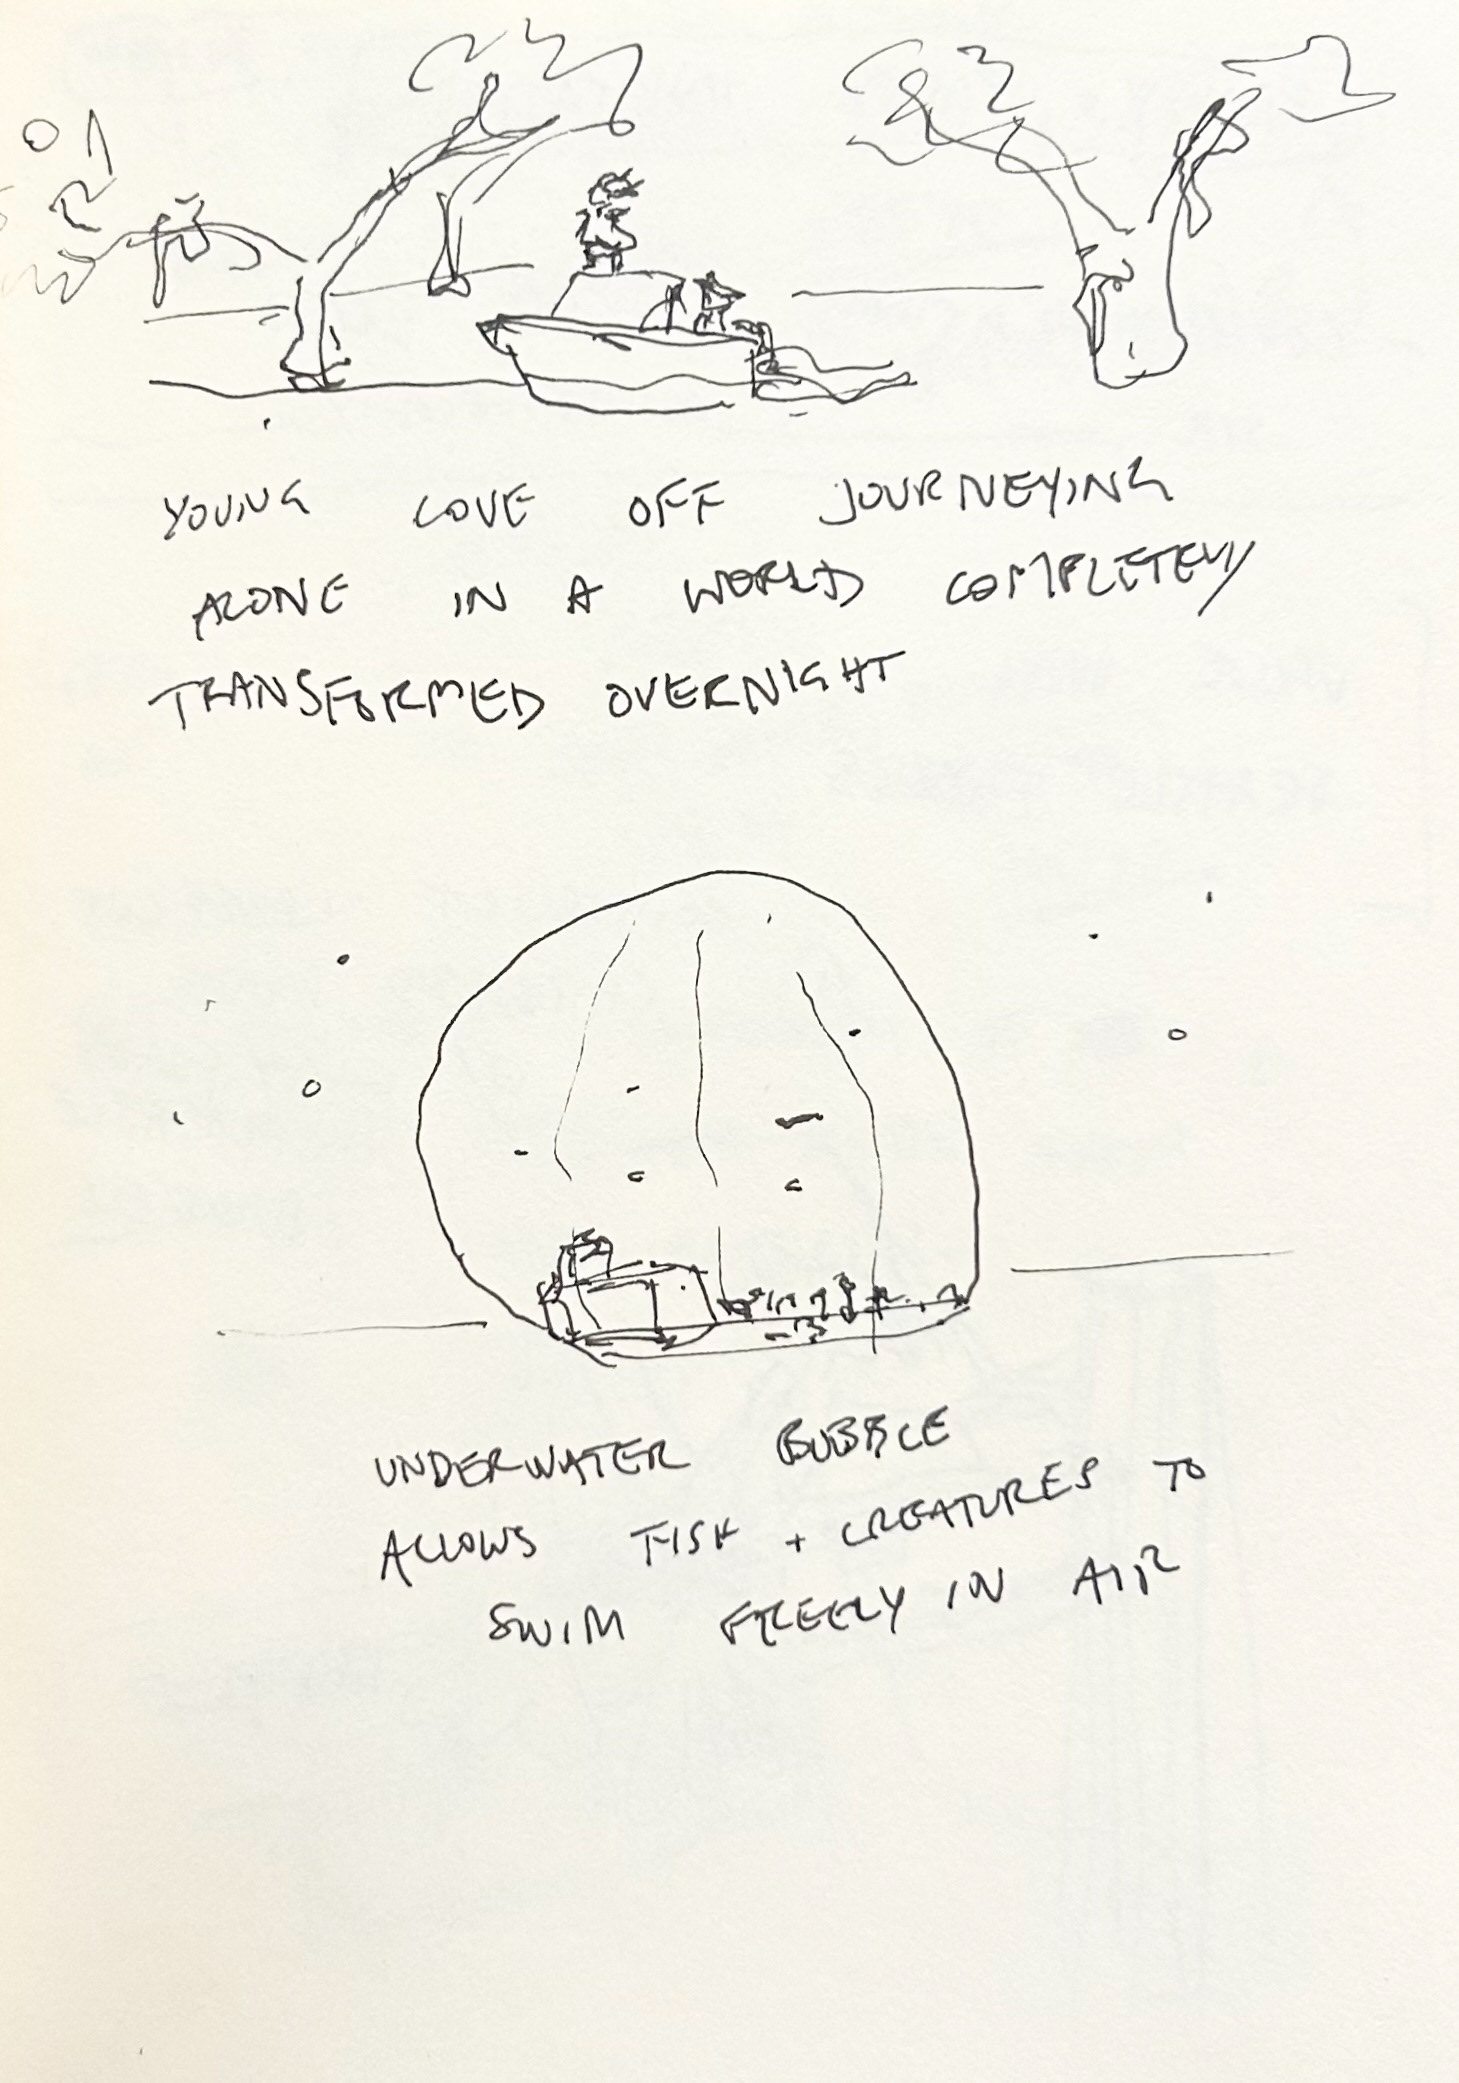 YOUNG LOVE OFF JOURNEYING
ALONE IN A WORLD COMPLETELY
TRANSFORMED OVERNIGHT
UNDERWATER BUBBLE
ALLOWS FISH + CREATURES TO
SWIM FREELY IN AIR